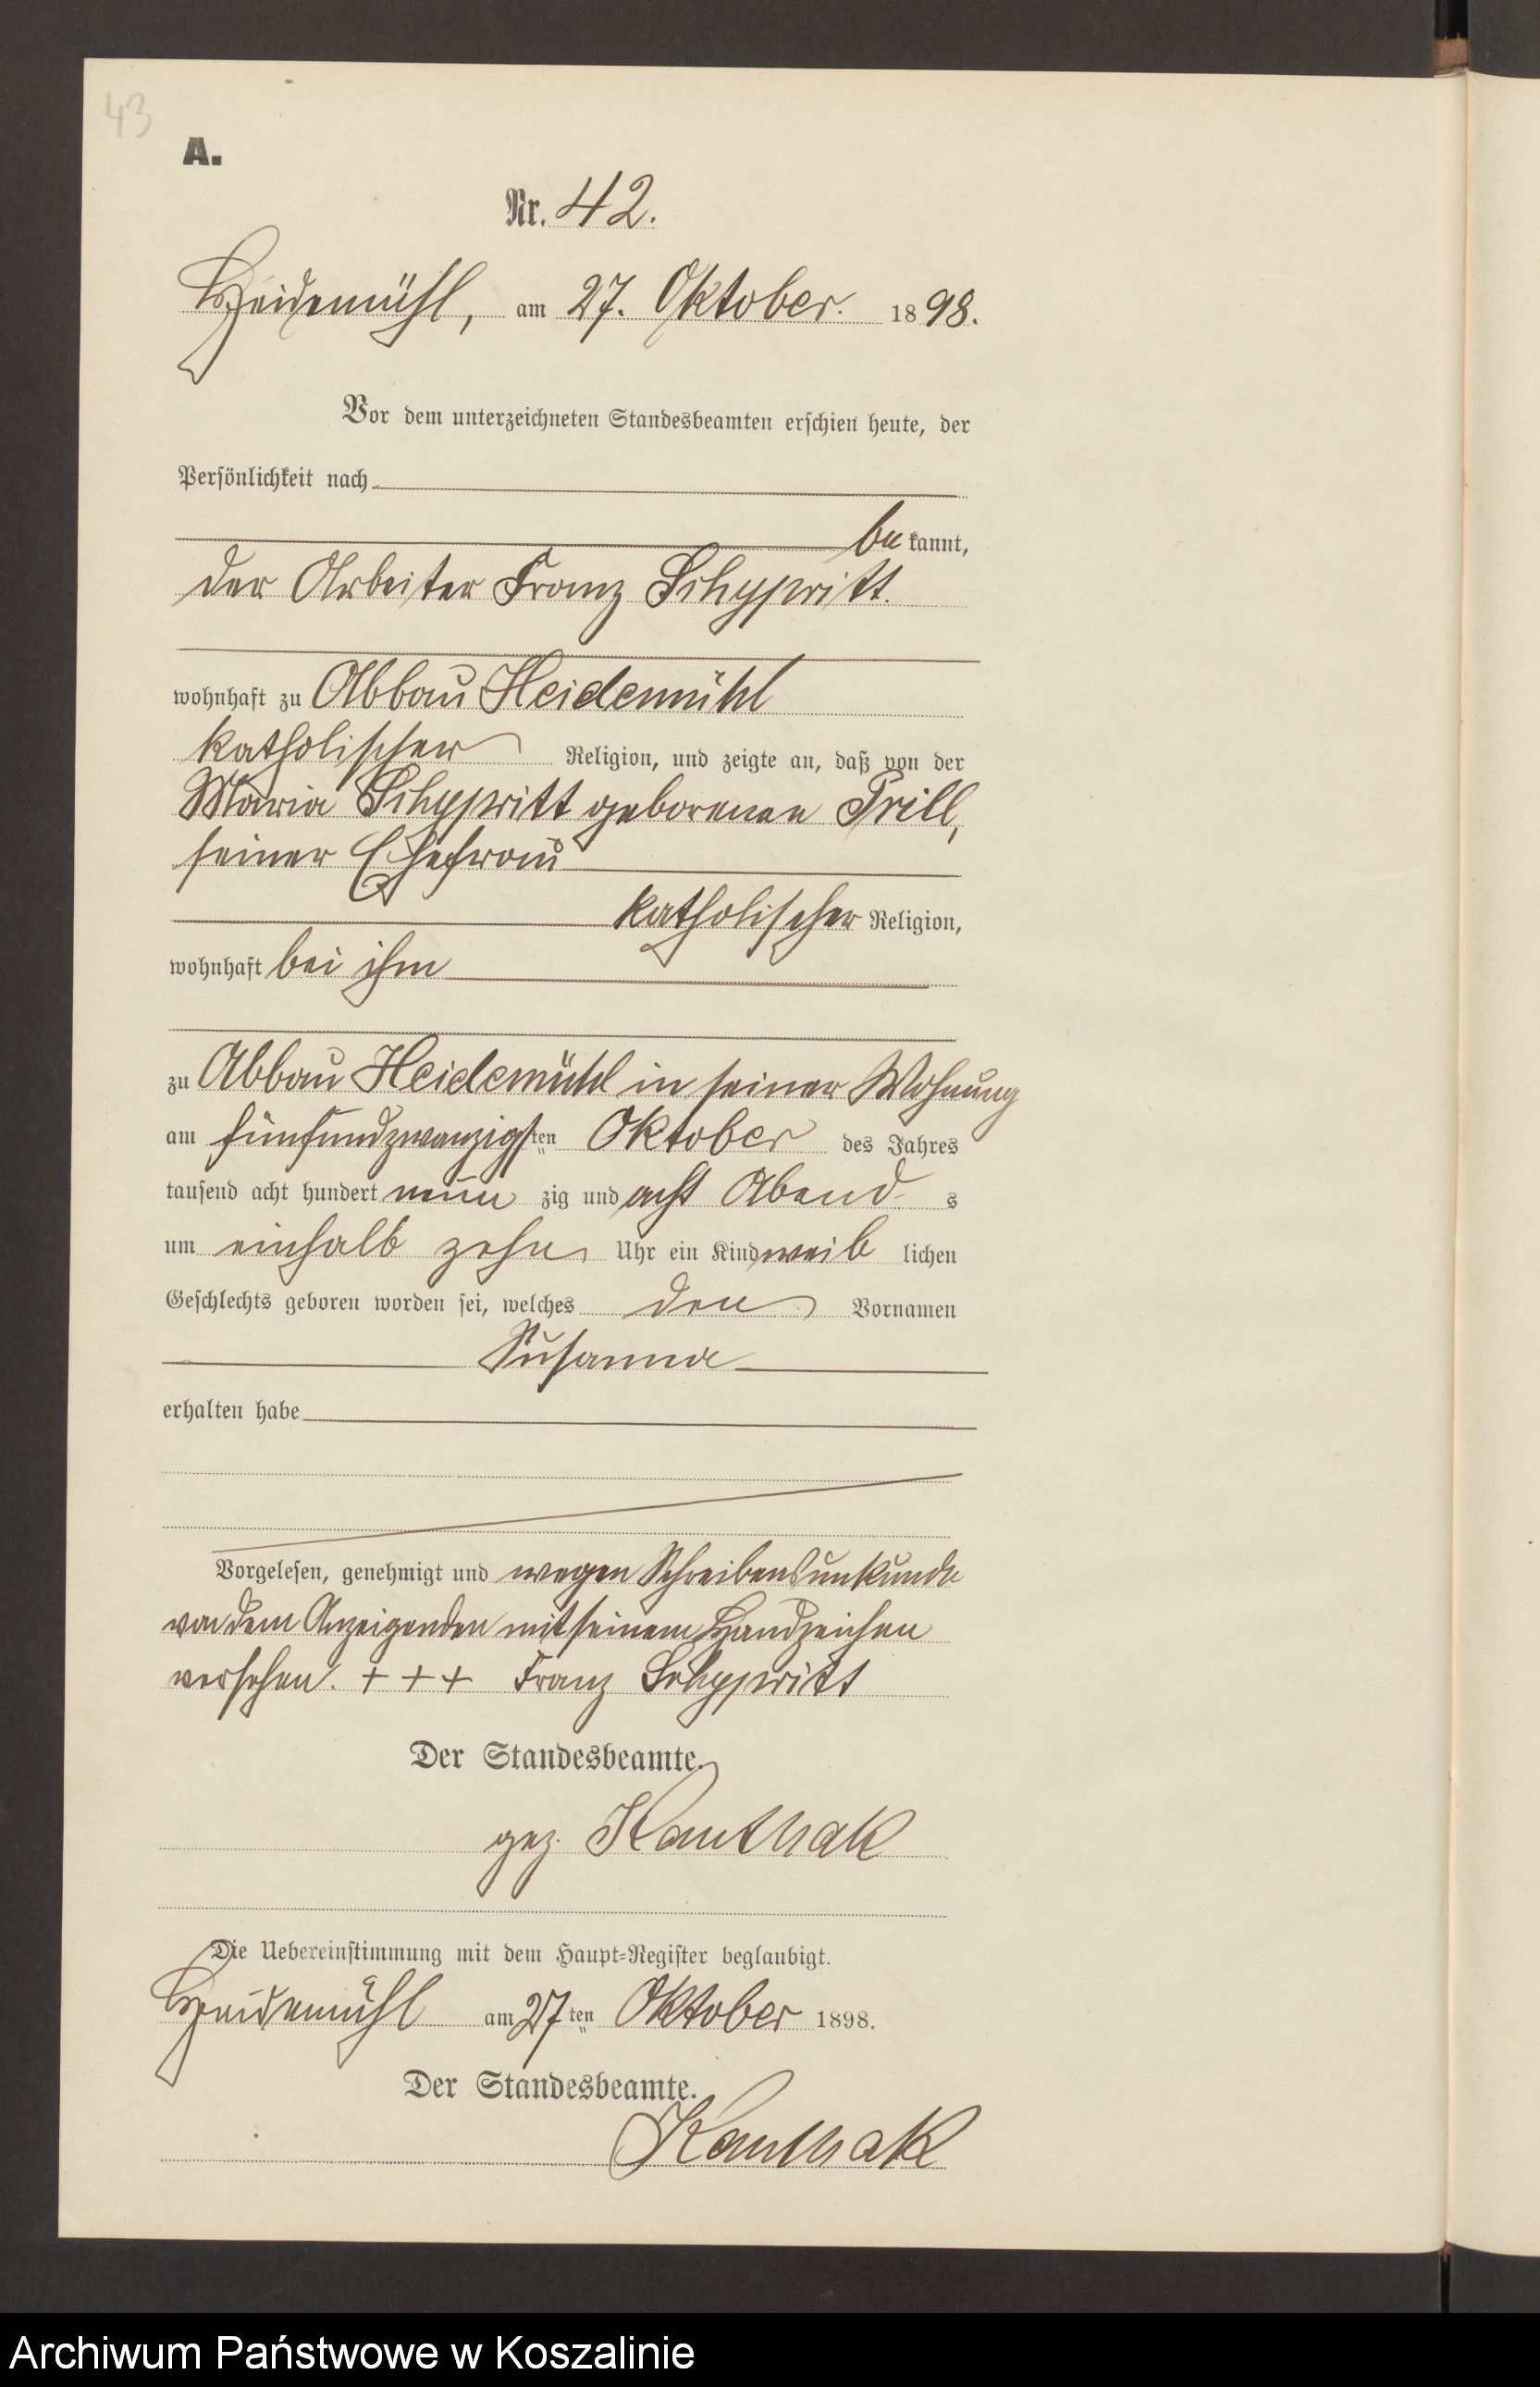 43
A.
Nr. 42.
Heidemühl, am 27. Oktober. 1898.
Vor dem unterzeichneten Standesbeamten erschien heute, der
Persönlichkeit nach
bekannt,
der Arbeiter Franz Schyppritt.
wohnhaft zu Abbau Heidemühl
katholischer Religion, und zeigte an, daß von der
Maria Schyppritt geborenen Prill,
seiner Ehefrau
katholischer Religion,
wohnhaft bei ihm
zu Abbau Heidemühl in seiner Wohnung
am fünfundzwanzigsten Oktober des Jahres
tausend acht hundert neunzig und acht Abends
um einhalb zehn Uhr ein Kind weiblichen
Geschlechts geboren worden sei, welches den Vornamen
Susanna
erhalten habe
Vorgelesen, genehmigt und wegen Schreibensunkunde
von dem Anzeigenden mit seinem Handzeichen
versehen. + + + Franz Schyppritt
Der Standesbeamte.
gez. Kauthak
Die Uebereinstimmung mit dem Haupt-Register beglaubigt.
Heidemühl am 27ten Oktober 1898.
Der Standesbeamte.
Kauthak
Archiwum Państwowe w Koszalinie